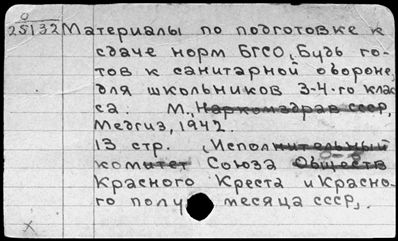 0
25132 Материалы по подготовке к
сдаче норм БГСО "Будь го-
тов к санитарной обороне"
для школьников 3-4-го клас
са. М., Наркомздрав СССР,
Медгиз, 1942.
13 стр. (Исполнительный
комитет Союза Обществ
Красного Креста и Красно-
го полумесяца СССР).
X